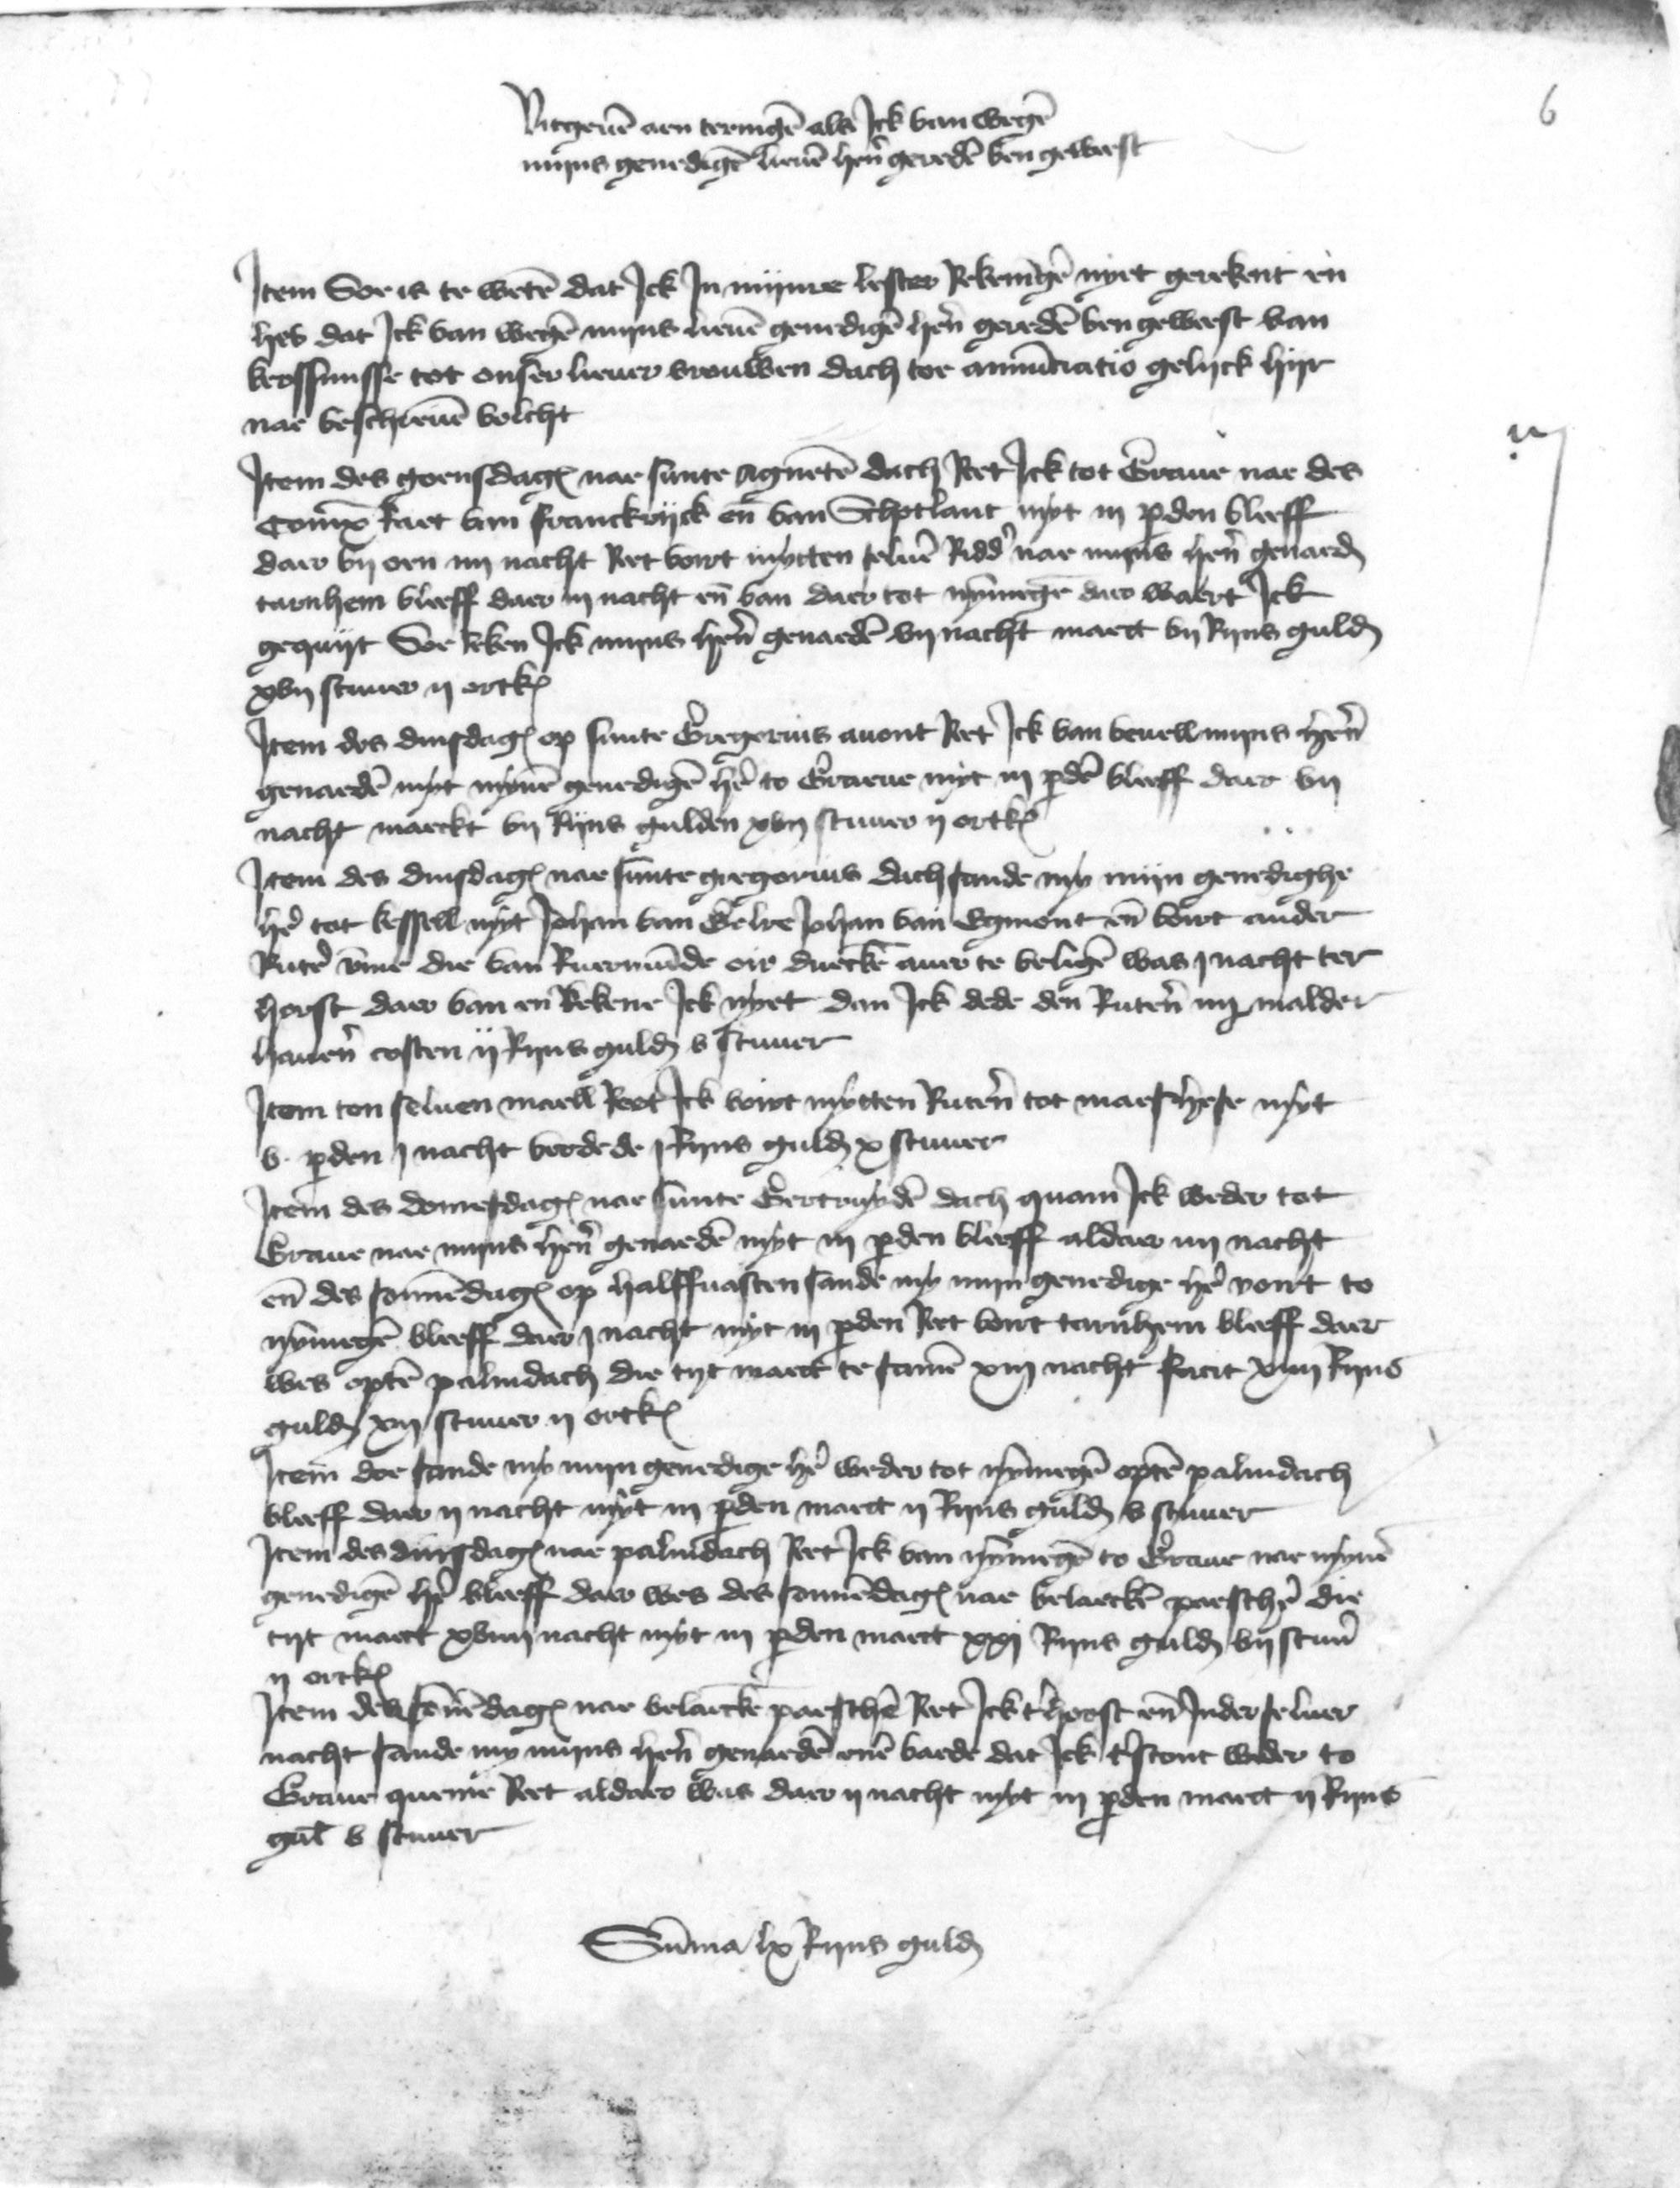 6
Uitgeuē aen teringē als Ick van wegē
myns genedigē lieuē herē geredē ben geweest
Item Soe is te wetē dat Ick In mynre lester Rekeningē nyet gerekent en
hes dat Ick van wegē myns lieuē genedigē herē geredē ben geweest van
kerssmisse tot onser lieuer vrouwen dach toe annūciatio gelyck hijr
nae beschreuē volcht
Item des goensdags nae sunte Agnetē dach Reet Ick tot Graue nae des
Coninx raet van franckryck en̄ van Schotlant myt iij perden bleeff
daer by oen iiij nacht Reet vort mytten seluē Ridd' nae myns herē genaedē
tarnhem bleeff daer iij nacht en̄ van daer tot nymegē daer waert Ick
gequijt Soe reken Ick myns herē genaedē vij nacht maect vij Ryns guldē
xvij stuuer ij ortkē
Item des dinsdags op sunte Gregorius auont Reet Ick van beuell myns herē
genaedē myt mynē genedigē hē to Graeue myt iij perdē bleeff daer vij
nacht maeckt vij Ryns gulden xvij stuuer ij ortkē
Item des dinsdags nae sunte gregorius dach sande my myn genedighe
hē tot kessell myt Johan van Gelre Johan van Egmont en̄ vort ander
Ruterē ōme die van Ruermūde oir duecke auer te veligē was j nacht ter
horst daer van en Rekene Ick nyet dan Ick dede den Ruterē iiij malder
hauerē costen ij Ryns guldē v stuuer
Item ten seluen maell Reet Ick vort mytten Ruterē tot maeshese myt
v. perden j nacht verdede j Ryns guldē x stuuer
Item des donresdags nae sunte Gertruydē dach quam Ick weder tot
Graue nae myns herē genaedē myt iij perden bleeff aldaer iiij nacht
en̄ des sonnēdags op halffuasten sande my myn genedige hē vort to
nymegē bleeff daer j nacht myt iij perden Reet vort tarnhem bleeff daer
wes optē palmdach die tyt maect te samē xiij nacht facit xiiij Ryns
guldē xij stuuer ij ortkē
Item doe sande my myn genedige hē weder tot nymegē optē palmdach
bleeff daer ij nacht myt iij perden maect ij Ryns guldē v stuuer
Item des dinsdags nae palmdach Reet Ick van nymegē to Graue nae mynē
genedigē hē bleeff daer wes des sonnēdags nae belaeckē paeschē die
tyt maect xviiij nacht myt iij perden maect xxj Ryns guldē vij stuuē
ij ortkē
Item des sōnēdags nae belaeckē paeschē Reet Ick t' hoerst en̄ Inder seluer
nacht sande my myns herē genaedē enē baede dat Ick t' stont weder to
Graue queme Reet aldaer was daer ij nacht myt iij perden maect ij Ryns
gul̄ v stuuer
Sūma lx Ryns guldē